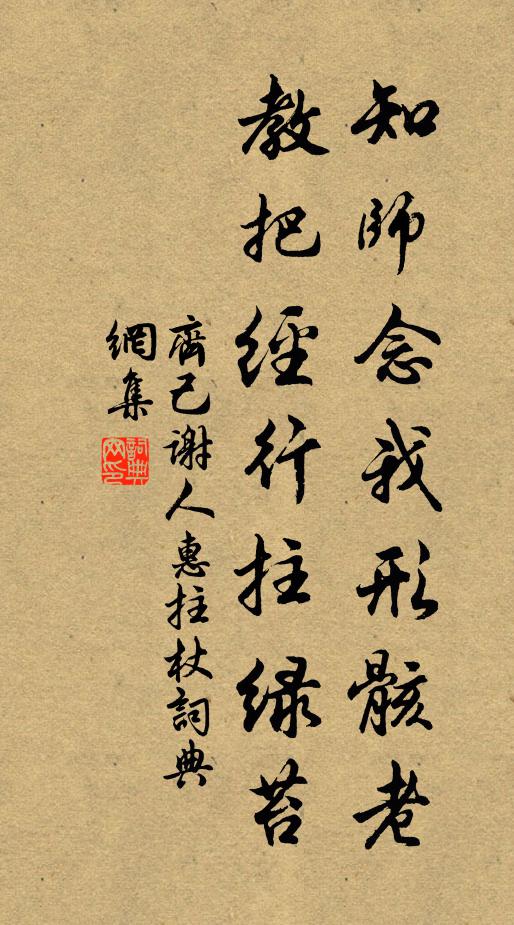 知師念我形骸老
教把經行拄綠苔
齊己謝人惠拄杖詞典
網集
詞典
网印